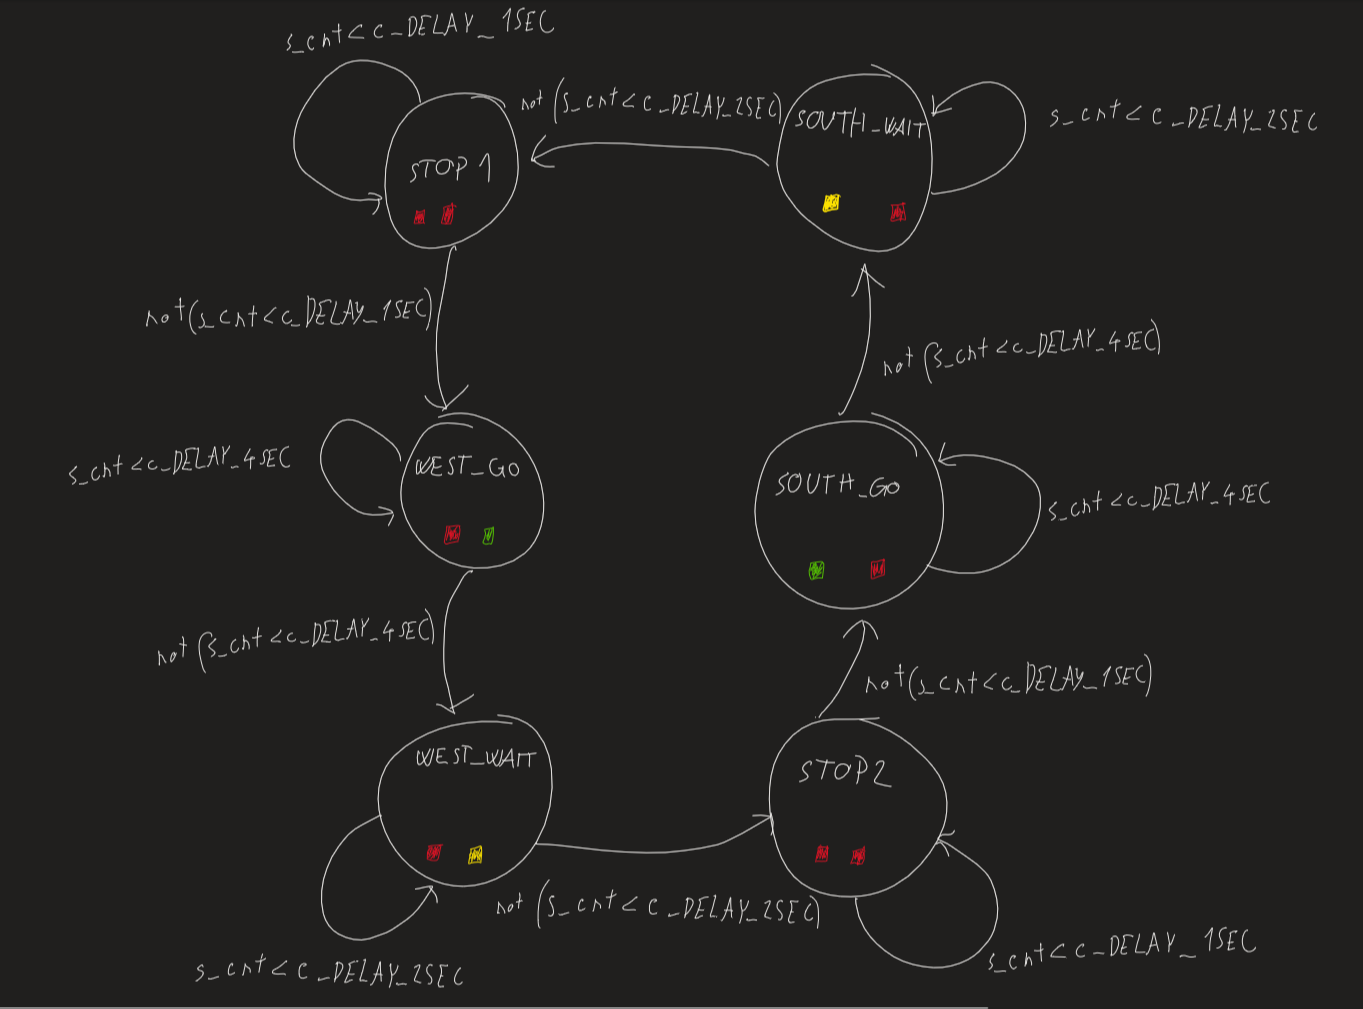 s_cnt < c_DELAY_1SEC
not (s_cnt < c_DELAY_2SEC)
SOUTH_WAIT
s_cnt < c_DELAY_2SEC
STOP1
not(s_cnt < c_DELAY_1SEC)
not (s_cnt < c_DELAY_4SEC)
s_cnt < c_DELAY_4SEC
WEST_GO
SOUTH_GO
s_cnt < c_DELAY_4SEC
not (s_cnt < c_DELAY_4SEC)
not(s_cnt < c_DELAY_1SEC)
WEST_WAIT
STOP2
not (s_cnt < c_DELAY_2SEC)
s_cnt < c_DELAY_1SEC
s_cnt < c_DELAY_2SEC